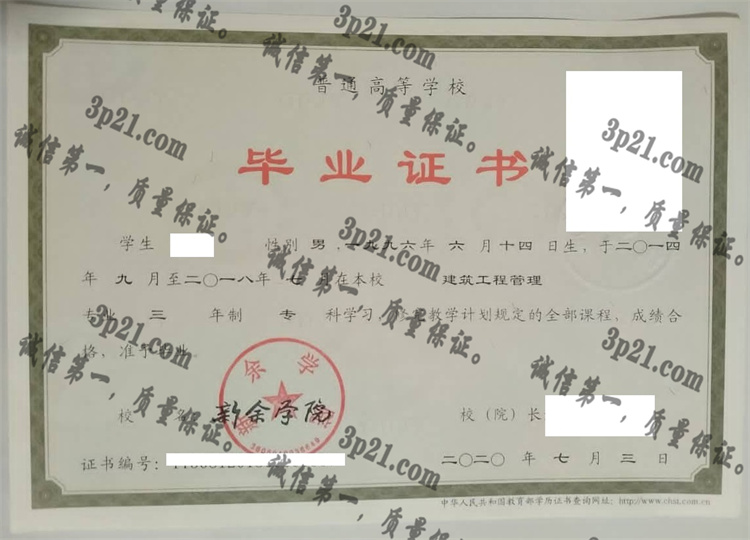 普通高等学校
毕业证书
学生 性别 男,一九九六年 六 月十四日生,于二〇一四
年 九 月至二〇一八年 七 月在本校 建筑工程管理
专业 三 年制 专 科学习, 教学计划规定的全部课程,成绩合
格,准予毕业。
新余学院
校 名: 新余学院 校(院)长
证书编号:
二〇二〇 年 七 月 三 日
中华人民共和国教育部学历证书查询网址:http://www.chsi.com.cn
3p21.com
诚信第一,质量保证。
3p21.com
诚信第一,质量保证。
3p21.com
诚信第一,质量保证。
3p21.com
诚信第一,质量保证。
3p21.com
诚信第一,质量保证。
3p21.com
诚信第一,质量保证。
3p21.com
诚信第一,质量保证。
3p21.com
诚信第一,质量保证。